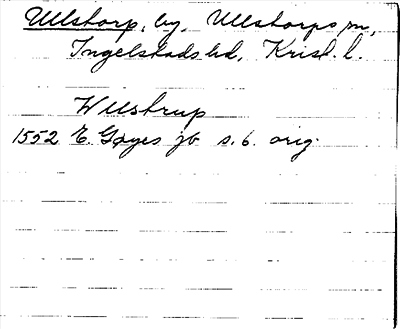 Ullstorp, by, Ullstorps sn,
Ingelstads hd, Krist. l.
Wllstrup
1552 E. Gøyes jb s. 6. orig.